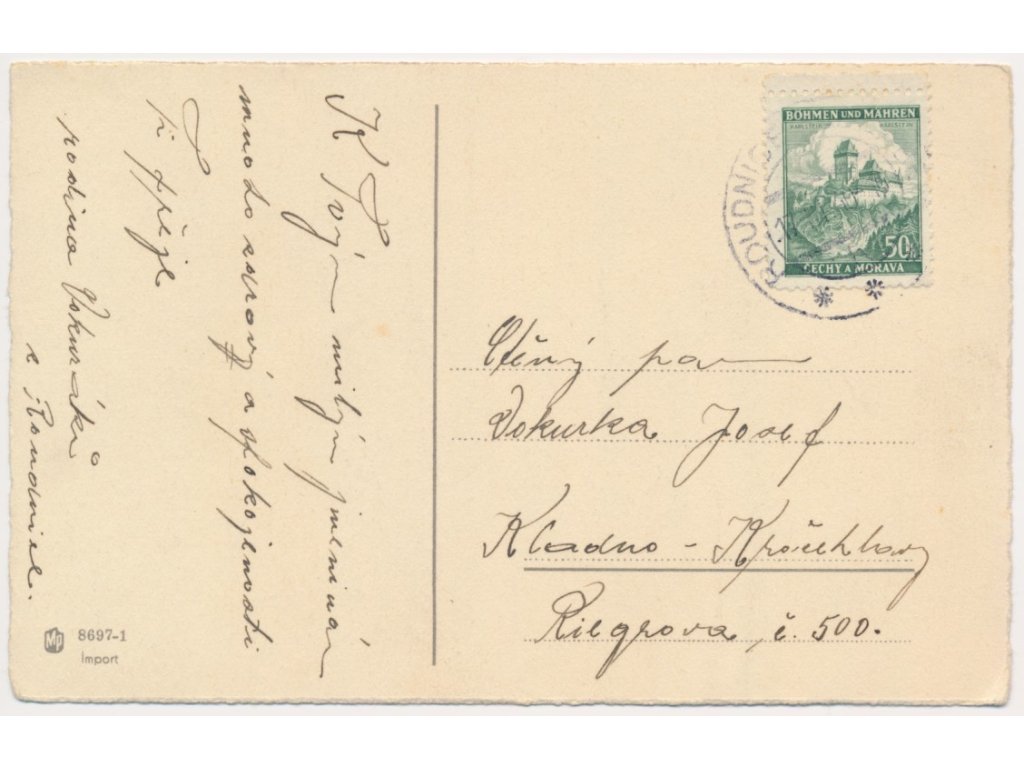 K Tvým milým jmeninám
mnoho zdraví a spokojenosti
Ti přeje
rodina Vokurků
z Roudnice.
8697-1
Import
BÖHMEN UND MÄHREN
KARLSTEIN KARLŠTEJN
50h
ČECHY A MORAVA
ROUDNIC
Ctěný pan
Vokurka Josef
Kladno - Kročehlavy
Riegrova č. 500.